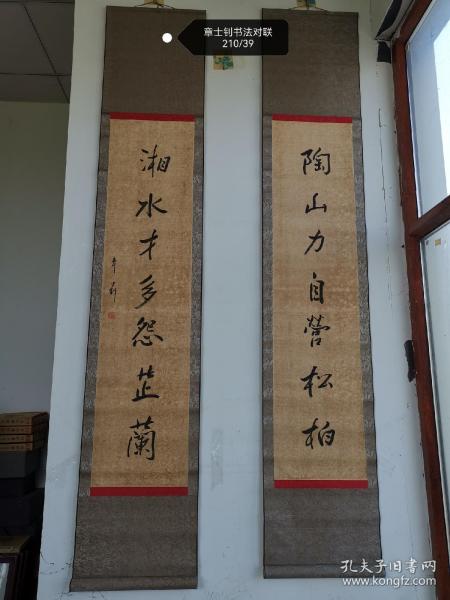 章士钊书法对联
210/39
陶山力自營松柏
湘水才多怨芷蘭
孔夫子旧书网
www.kongfz.com